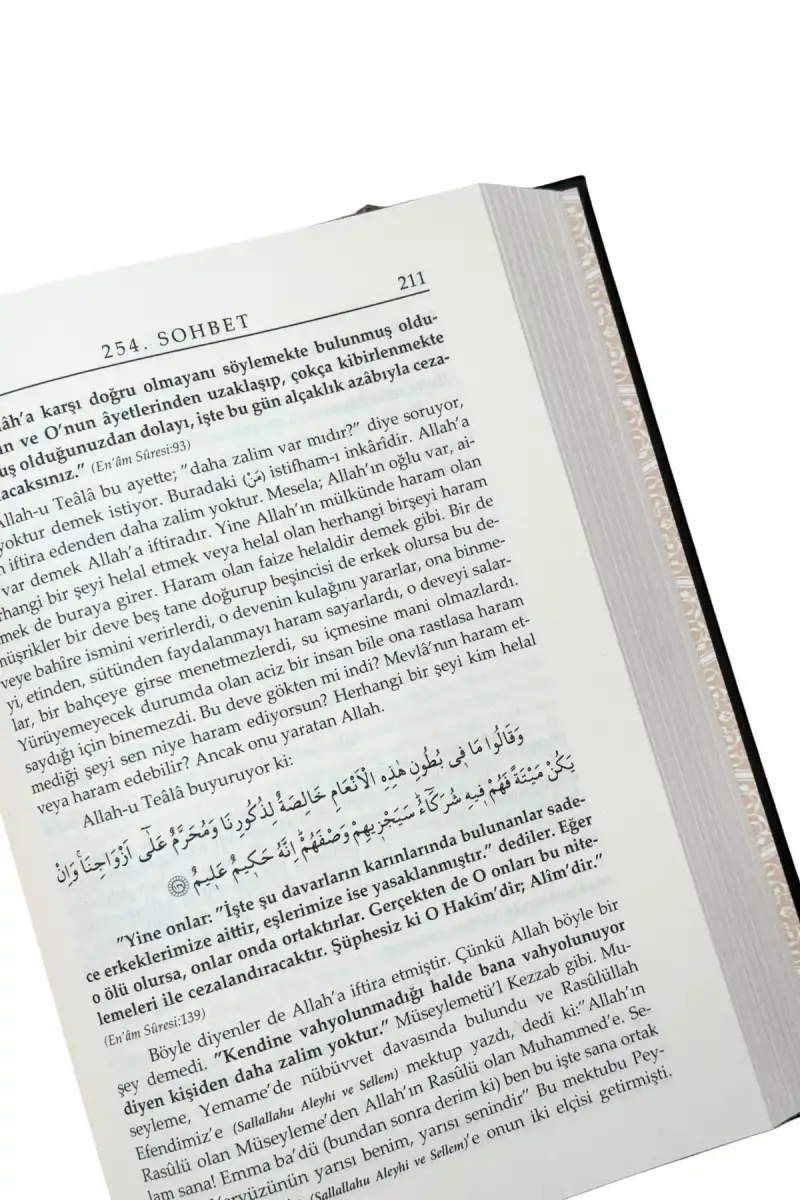 254. SOHBET 211
lâh'a karşı doğru olmayanı söylemekte bulunmuş oldu-
ın ve O'nun âyetlerinden uzaklaşıp, çokça kibirlenmekte
uş olduğunuzdan dolayı, işte bu gün alçaklık azâbıyla ceza-
acaksınız." (En'âm Sûresi:93)
Allah-u Teâlâ bu ayette; "daha zalim var mıdır?" diye soruyor,
yoktur demek istiyor. Buradaki (مَنْ) istifham-ı inkârîdir. Allah'a
iftira edenden daha zalim yoktur. Mesela; Allah'ın oğlu var, ai-
var demek Allah'a iftiradır. Yine Allah'ın mülkünde haram olan
rhangi bir şeyi helal etmek veya helal olan herhangi birşeyi haram
mek de buraya girer. Haram olan faize helaldir demek gibi. Bir de
müşrikler bir deve beş tane doğurup beşincisi de erkek olursa bu de-
veye bahîre ismini verirlerdi, o devenin kulağını yararlar, ona binme-
yi, etinden, sütünden faydalanmayı haram sayarlardı, o deveyi salar-
lar, bir bahçeye girse menetmezlerdi, su içmesine mani olmazlardı.
Yürüyemeyecek durumda olan aciz bir insan bile ona rastlasa haram
saydığı için binemezdi. Bu deve gökten mi indi? Mevlâ'nın haram et-
mediği şeyi sen niye haram ediyorsun? Herhangi bir şeyi kim helal
veya haram edebilir? Ancak onu yaratan Allah.
Allah-u Teâlâ buyuruyor ki:
وَقَالُوا مَا فِى بُطُونِ هٰذِهِ الْاَنْعَامِ خَالِصَةٌ لِذُكُورِنَا وَمُحَرَّمٌ عَلٰٓى اَزْوَاجِنَاۚ وَاِنْ
يَكُنْ مَيْتَةً فَهُمْ فِيهِ شُرَكَٓاءُۜ سَيَجْزِيهِمْ وَصْفَهُمْۜ اِنَّهُ حَكِيمٌ عَلِيمٌ ﴿١٣٩﴾
"Yine onlar: "İşte şu davarların karınlarında bulunanlar sade-
ce erkeklerimize aittir, eşlerimize ise yasaklanmıştır." dediler. Eğer
o ölü olursa, onlar onda ortaktırlar. Gerçekten de O onları bu nite-
lemeleri ile cezalandıracaktır. Şüphesiz ki O Hakîm'dir; Alîm'dir."
(En'âm Sûresi:139)
Böyle diyenler de Allah'a iftira etmiştir. Çünkü Allah böyle bir
şey demedi. "Kendine vahyolunmadığı halde bana vahyolunuyor
diyen kişiden daha zalim yoktur." Müseylemetü'l Kezzab gibi. Mu-
seyleme, Yemame'de nübüvvet davasında bulundu ve Rasûlüllah
Efendimiz'e (Sallallahu Aleyhi ve Sellem) mektup yazdı, dedi ki:" Allah'ın
Rasûlü olan Müseyleme'den Allah'ın Rasûlü olan Muhammed'e. Se-
lam sana! Emma ba'dü (bundan sonra derim ki) ben bu işte sana ortak
yarısı benim, yarısı senindir" Bu mektubu Pey-
(Sallallahu Aleyhi ve Sellem)'e onun iki elçisi getirmişti.